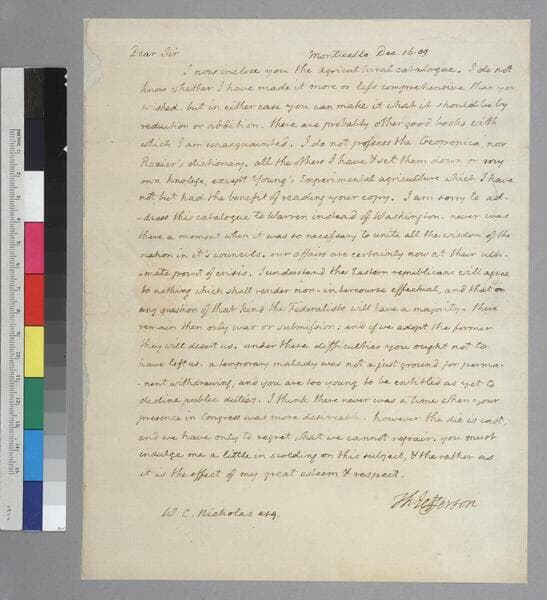 Dear Sir Monticello Dec. 16. 09
I now inclose you the agricultural catalogue. I do not
know whether I have made it more or less comprehensive than you
wished. but in either case you can make it what it should be by
reduction or addition. there are probably other good books with
which I am unacquainted. I do not possess the Geoponica, nor
Rozier's dictionary. all the others I have & set them down on my
own knolege, except Young's Experimental agriculture which I have
not but had the benefit of reading your copy. I am sorry to ad-
-dress this catalogue to Warren instead of Washington. never was
there a moment when it was so necessary to unite all the wisdom of the
nation in it's councils. our affairs are certainly now at their ulti-
-mate point of crisis. I understand the Eastern republicans will agree
to nothing which shall render non-intercourse effectual, and that on
any question of that kind the Federalists will have a majority. there
remain then only war or submission; and if we adopt the former
they will desert us. under these difficulties you ought not to
have left us. a temporary malady was not a just ground for perma-
-nent withdrawing, and you are too young to be entitled as yet to
decline public duties. I think there never was a time when your
presence in Congress was more desireable. however the die is cast,
and we have only to regret what we cannot repair. you must
indulge me a little in scolding on this subject, & the rather as
it is the effect of my great esteem & respect.
Th: Jefferson
W. C. Nicholas esq.